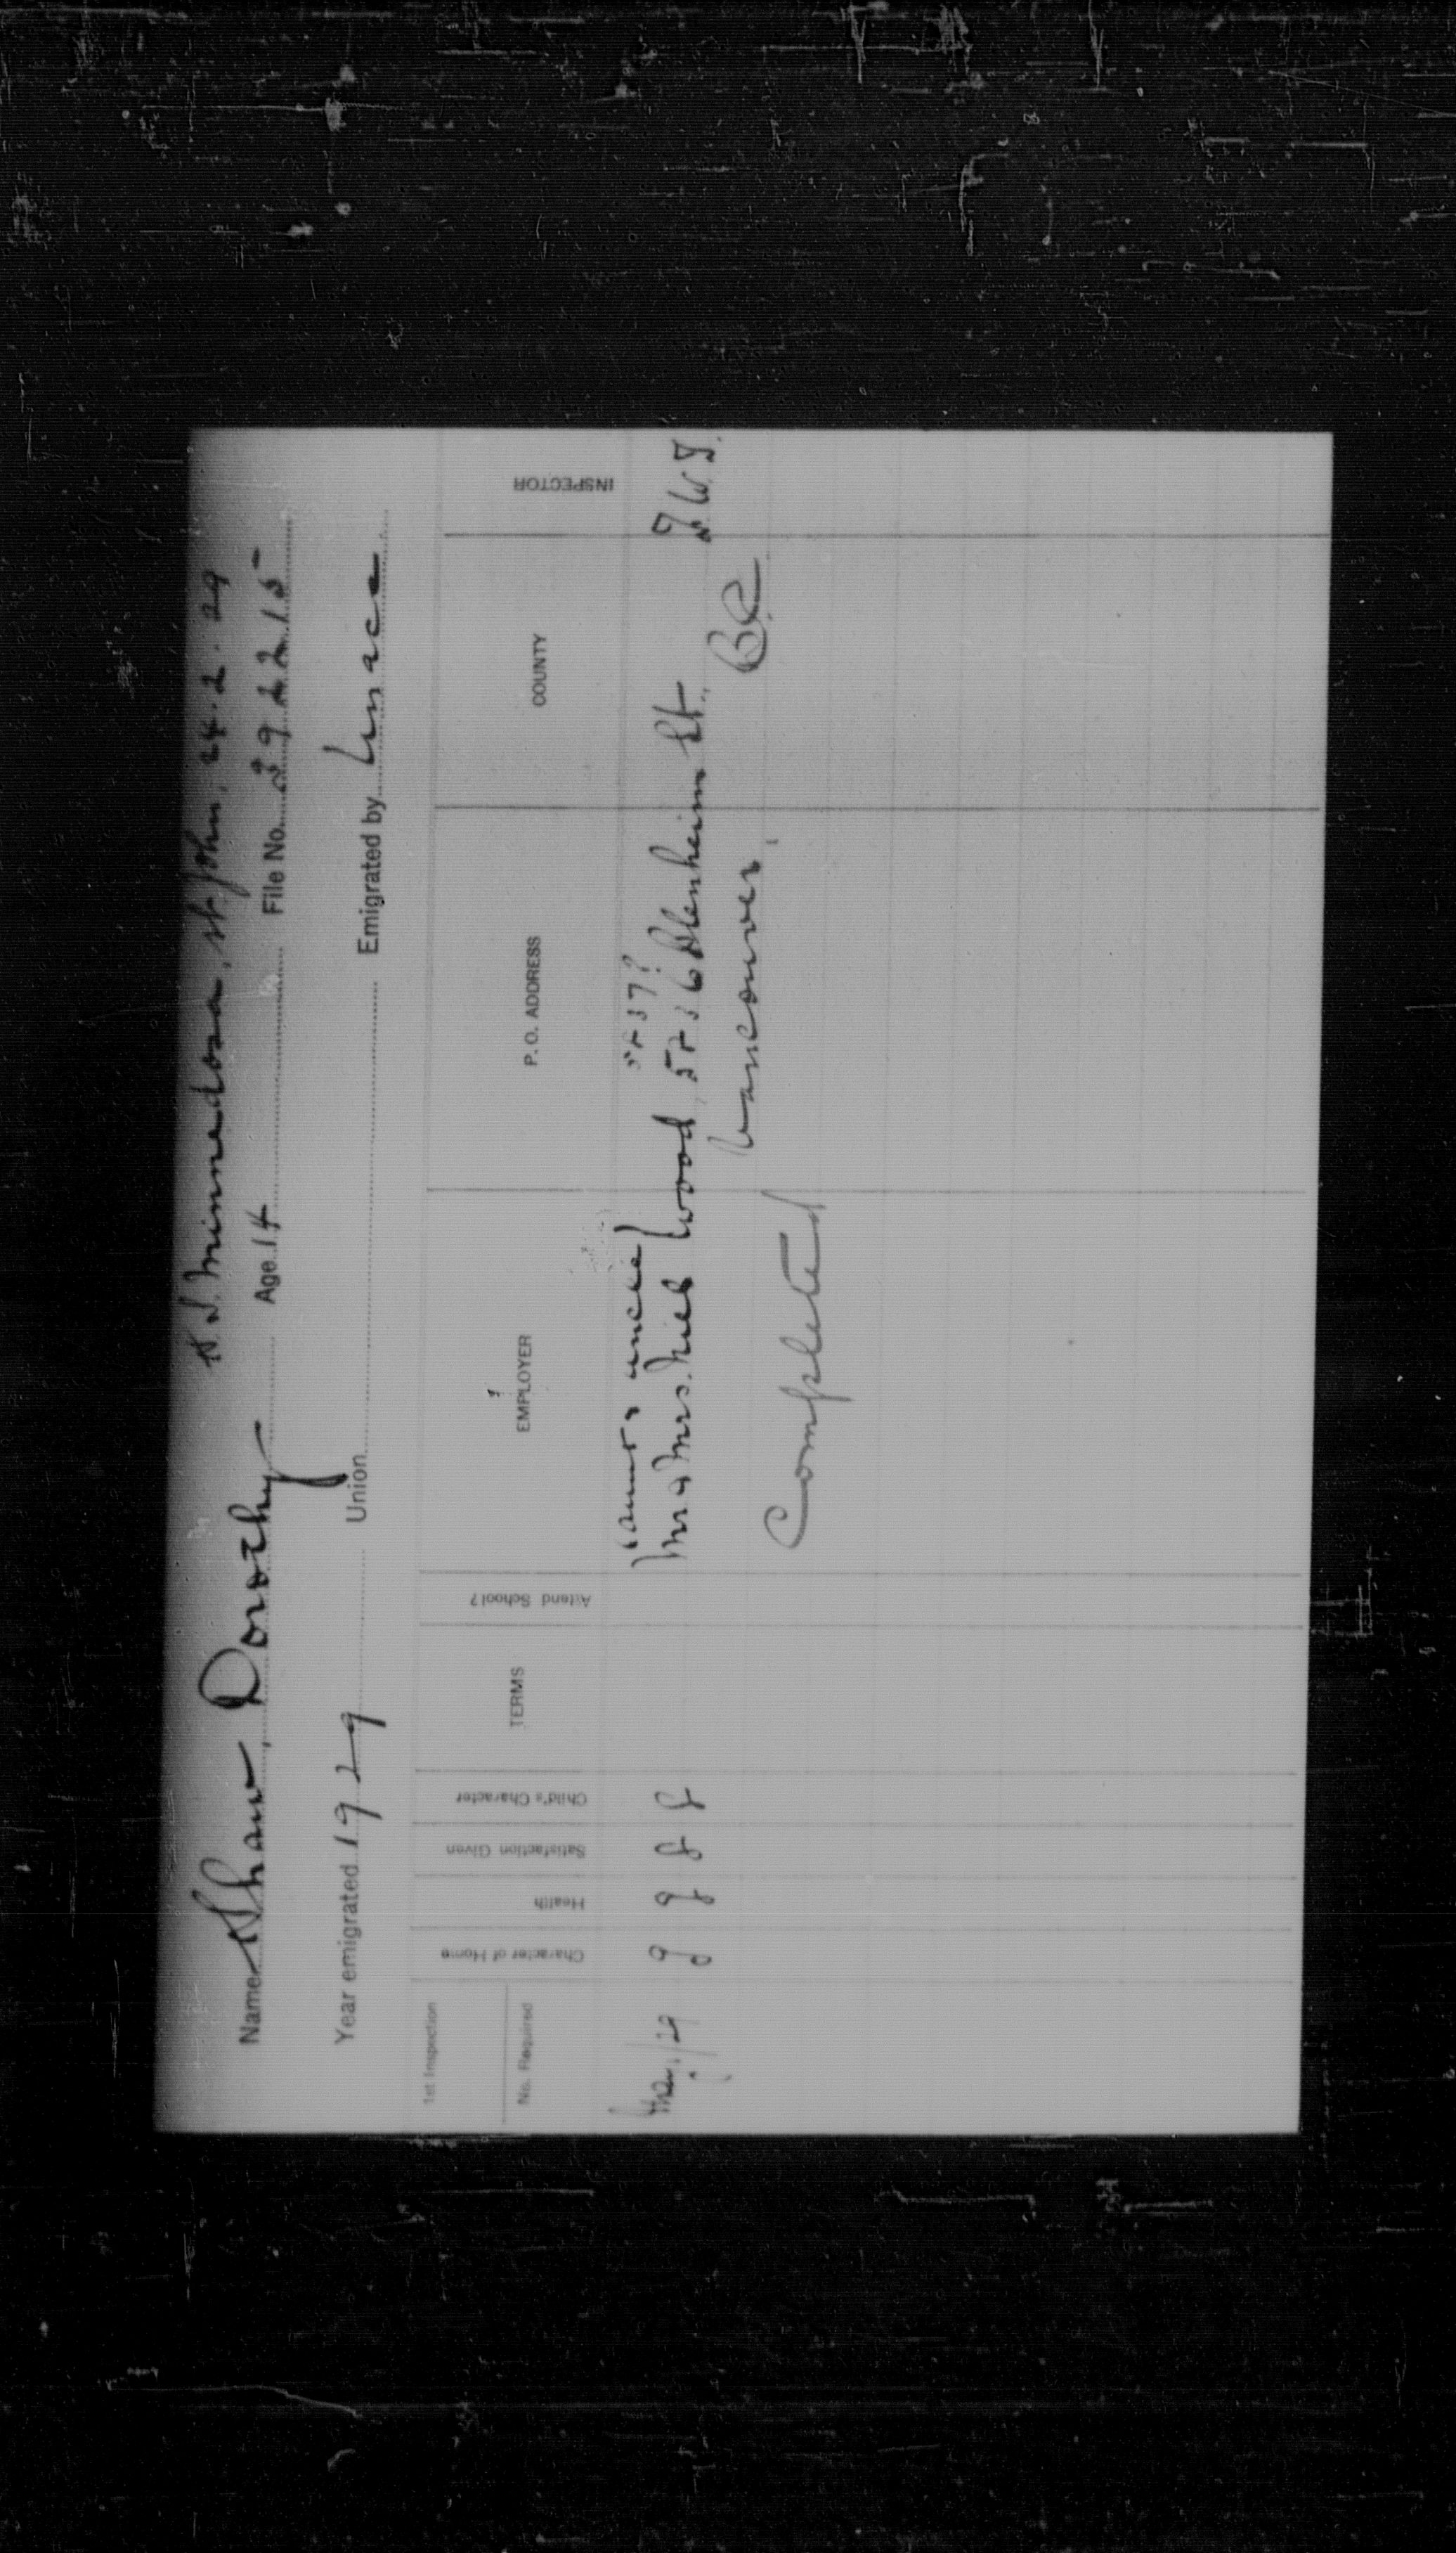 S.S. Minnedosa, St. John, 24.2.29
Name Shaw, Dorothy Age 14 File No. 392215
Year emigrated 1929 Union Emigrated by
1st Inspection
No. Required
Character of Home
Health
Satisfaction Given
Child's Character
TERMS
Attend School?
EMPLOYER
P. O. ADDRESS
COUNTY
INSPECTOR
(aunt & uncle) 5237?
May/29 g g g g Mr & Mrs. Wood, 5236 Blenheim St.
Vancouver, BC
Completed